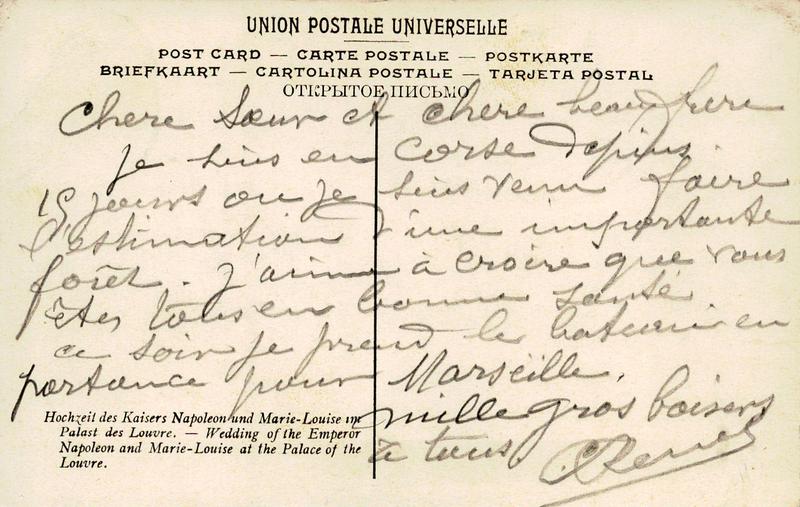 UNION POSTALE UNIVERSELLE
POST CARD — CARTE POSTALE — POSTKARTE
BRIEFKAART — CARTOLINA POSTALE — TARJETA POSTAL
ОТКРЫТОЕ ПИСЬМО
Chere Sœur et chere beau frere
Je suis en Corse depuis
15 jours ou je suis venu faire
l'estimation d'une importante
forêt. J'aime à croire que vous
êtes tous en bonne santé
ce soir je prend le bateau en
partance pour Marseille.
mille gros baisers
à tous.
Hochzeit des Kaisers Napoleon und Marie-Louise im
Palast des Louvre. — Wedding of the Emperor
Napoleon and Marie-Louise at the Palace of the
Louvre.